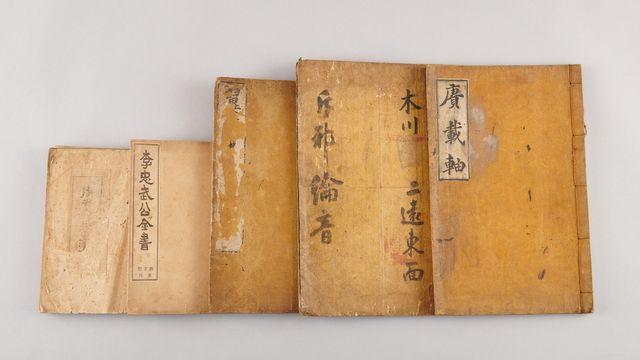 賡載軸
木川 二遠東西
斥邪綸音
李忠武公全書